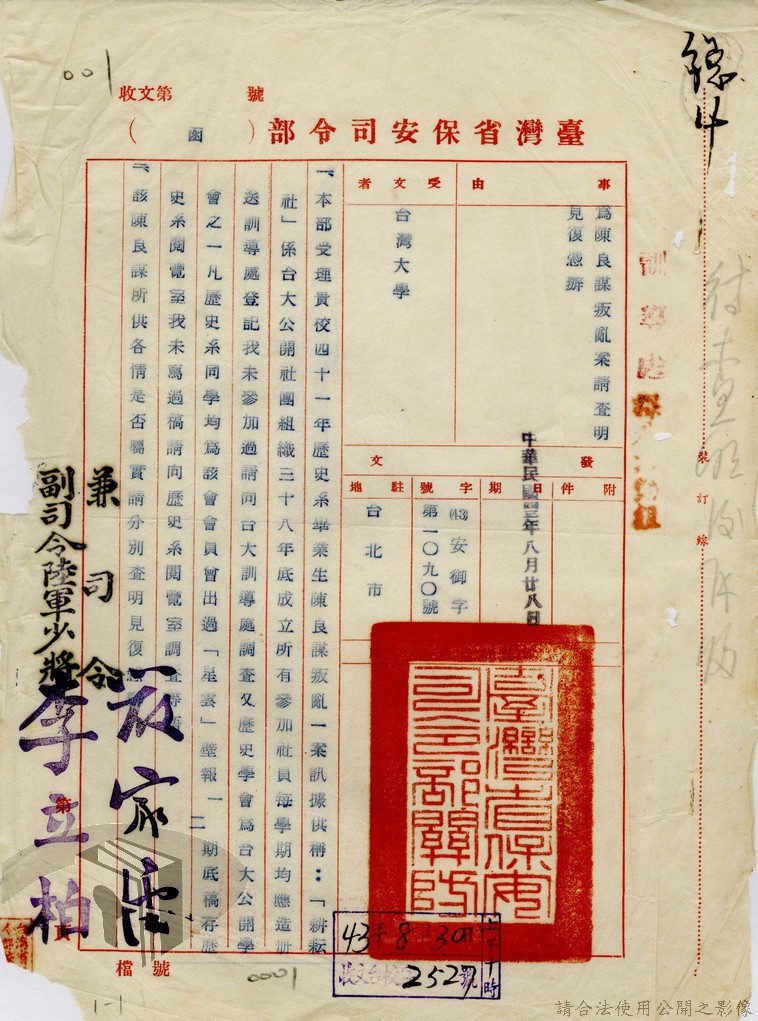 001
收文第 號
臺灣省保安司令部
（函）
事由
為陳良謀叛亂案請查明
見復憑辦
受文者
台灣大學
發文
附件
日期
中華民國四三年八月廿八日
字號
(43)安御字
第一〇九〇號
駐地
台北市
一、本部受理貴校四十一年歷史系畢業生陳良謀叛亂一案訊據供稱：「耕耘
社」係台大公開社團組織三十八年底成立所有參加社員每學期均應造冊
送訓導處登記我未參加過請向台大訓導處調查又歷史學會為台大公開學
會之一凡歷史系同學均為該會會員曾出過「星雲」壁報一二期底稿存歷
史系閱覽室我未寫過稿請向歷史系閱覽室調查
二、該陳良謀所供各情是否屬實請分別查明見復
兼司令
副司令陸軍少將
李立柏
臺灣省保安司令部關防
43年8月30日
上下午 時
收文 252 號
第 頁
檔號
0001
1-1
裝訂線
請合法使用公開之影像